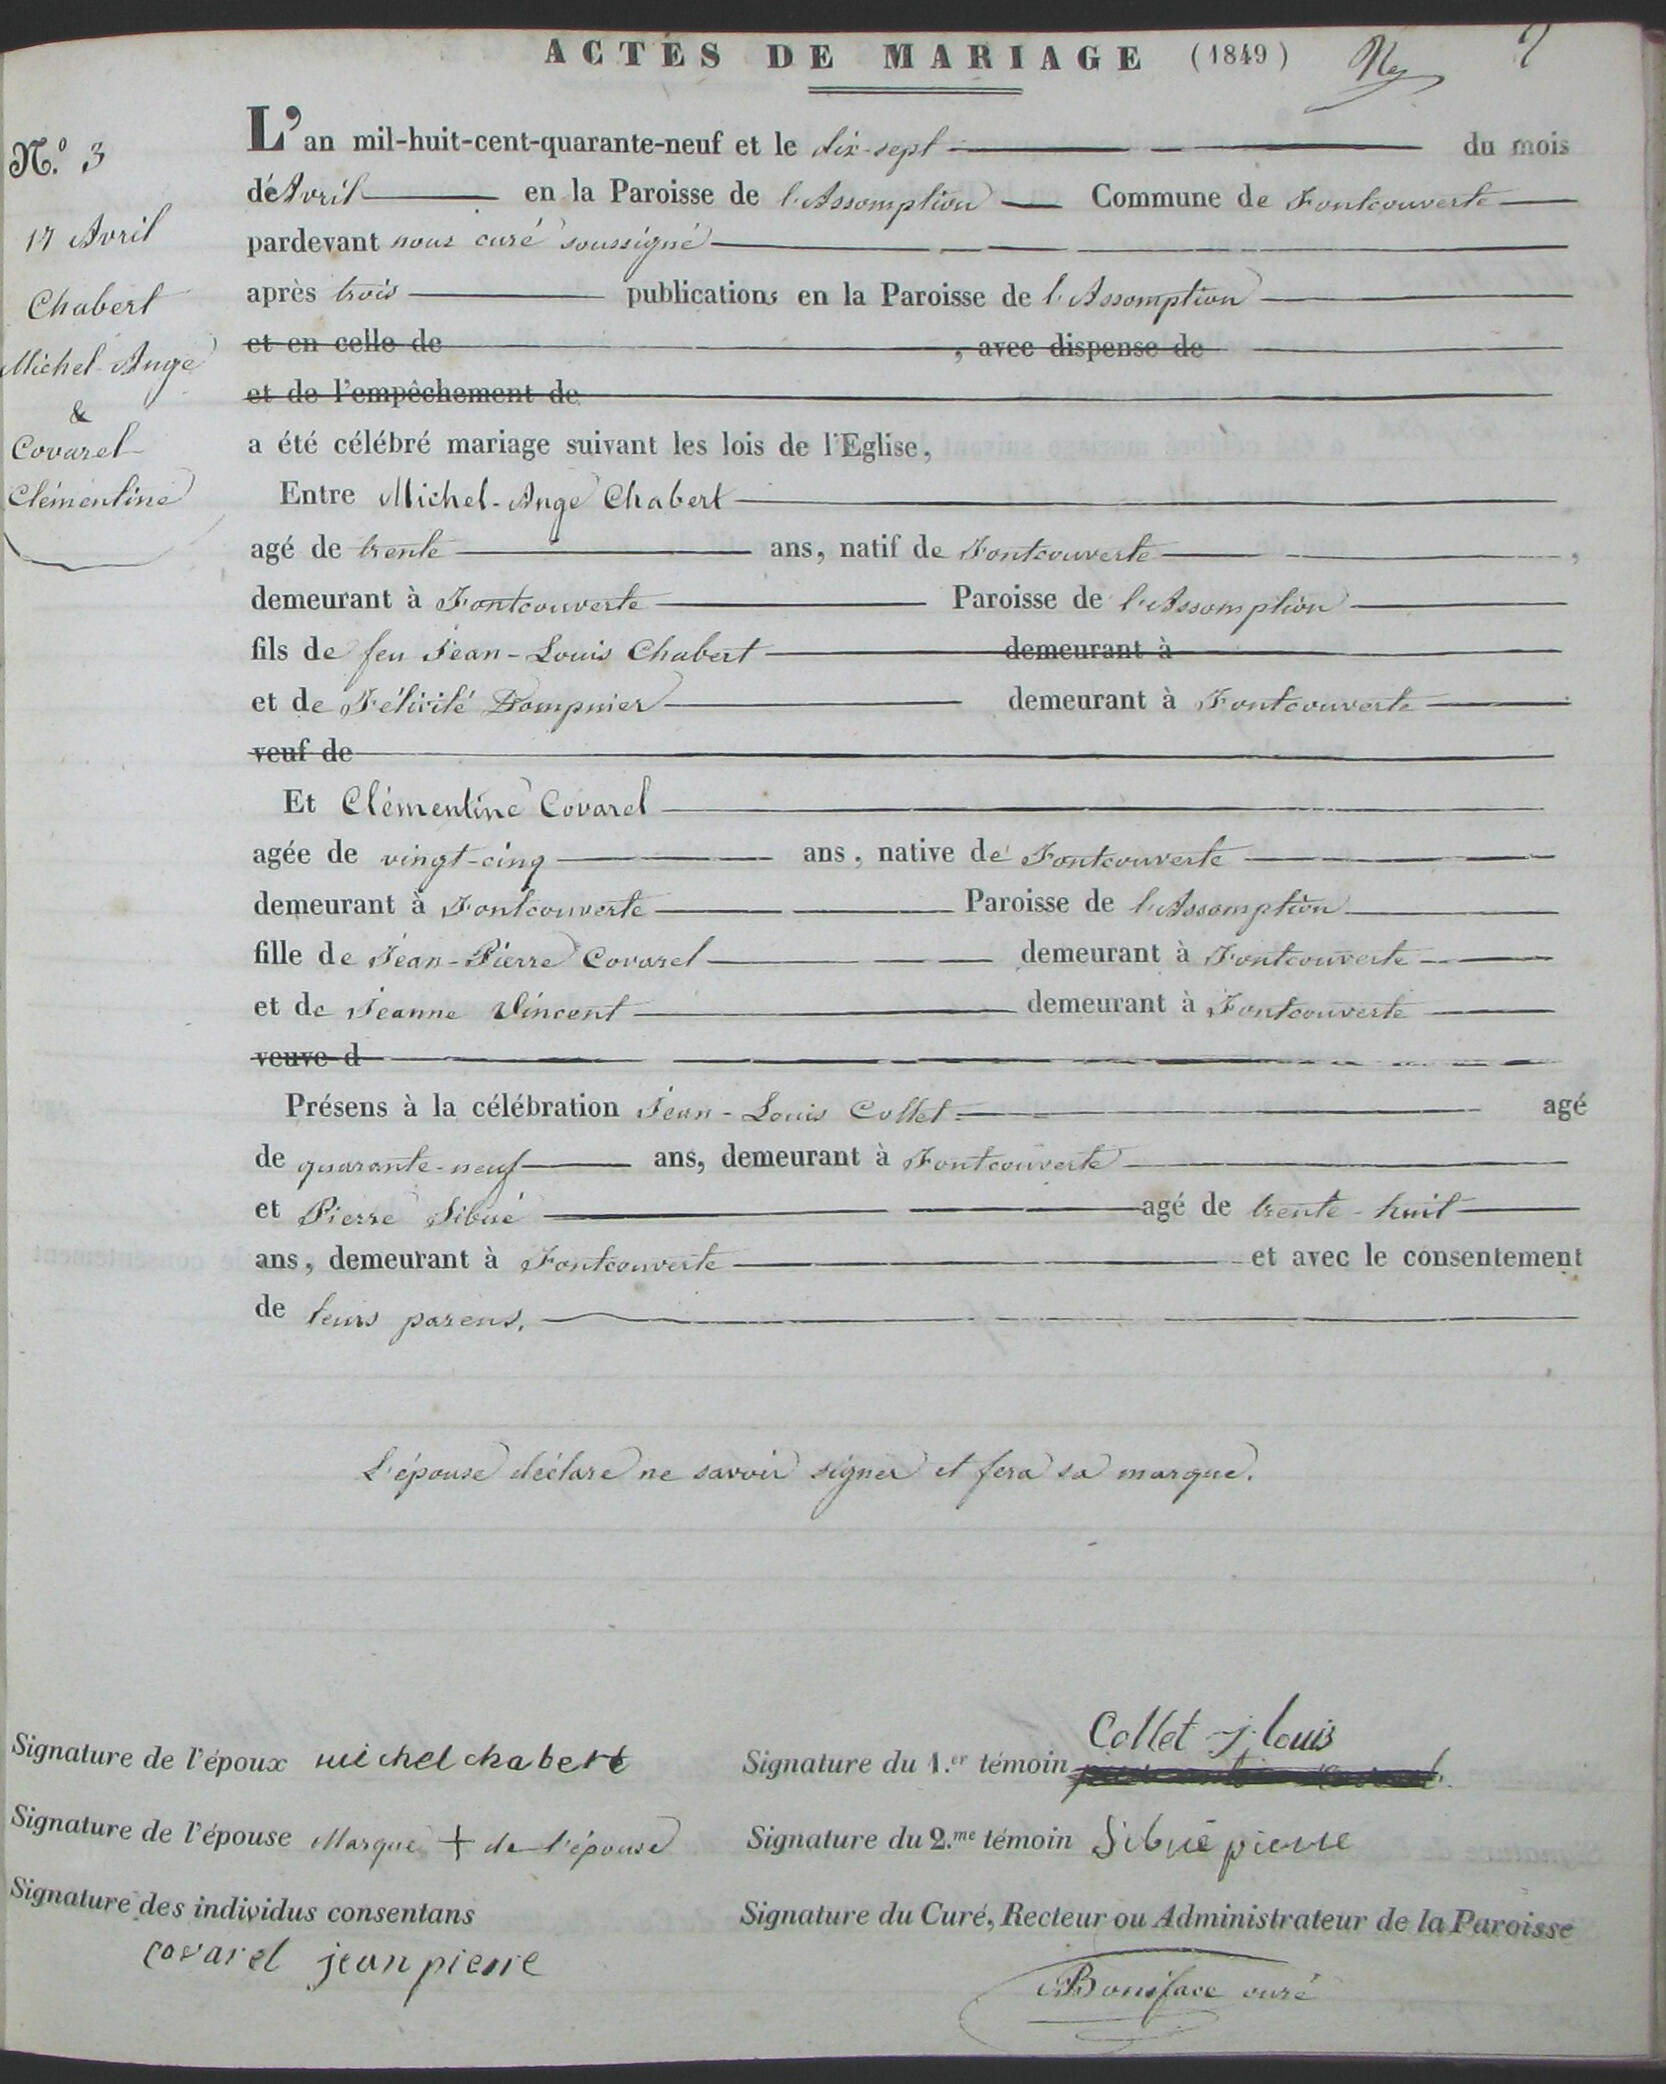 ACTES DE MARIAGE (1849)
N.º 3
17 Avril
Chabert
Michel-Ange
&
Covarel
Clémentine
L'an mil-huit-cent-quarante-neuf et le dix-sept du mois
de Avril en la Paroisse de l'Assomption Commune de Fontcouverte
pardevant nous curé soussigné
après trois publications en la Paroisse de l'Assomption
et en celle de , avec dispense de
et de l'empêchement de
a été célébré mariage suivant les lois de l'Eglise,
Entre Michel-Ange Chabert
agé de trente ans, natif de Fontcouverte ,
demeurant à Fontcouverte Paroisse de l'Assomption
fils de feu Jean-Louis Chabert demeurant à
et de Félicité Dompnier demeurant à Fontcouverte
veuf de
Et Clémentine Covarel
agée de vingt-cinq ans, native de Fontcouverte
demeurant à Fontcouverte Paroisse de l'Assomption
fille de Jean-Pierre Covarel demeurant à Fontcouverte
et de Jeanne Vincent demeurant à Fontcouverte
veuve d
Présens à la célébration Jean-Louis Collet agé
de quarante-neuf ans, demeurant à Fontcouverte
et Pierre Sibué agé de trente-huit
ans, demeurant à Fontcouverte et avec le consentement
de leurs parens.
L'épouse déclare ne savoir signer et fera sa marque.
Signature de l'époux michel chabert
Signature de l'épouse Marque + de l'épouse
Signature des individus consentans
covarel jean pierre
Collet j. louis
Signature du 1.er témoin
Signature du 2.me témoin Sibué pierre
Signature du Curé, Recteur ou Administrateur de la Paroisse
Boniface curé